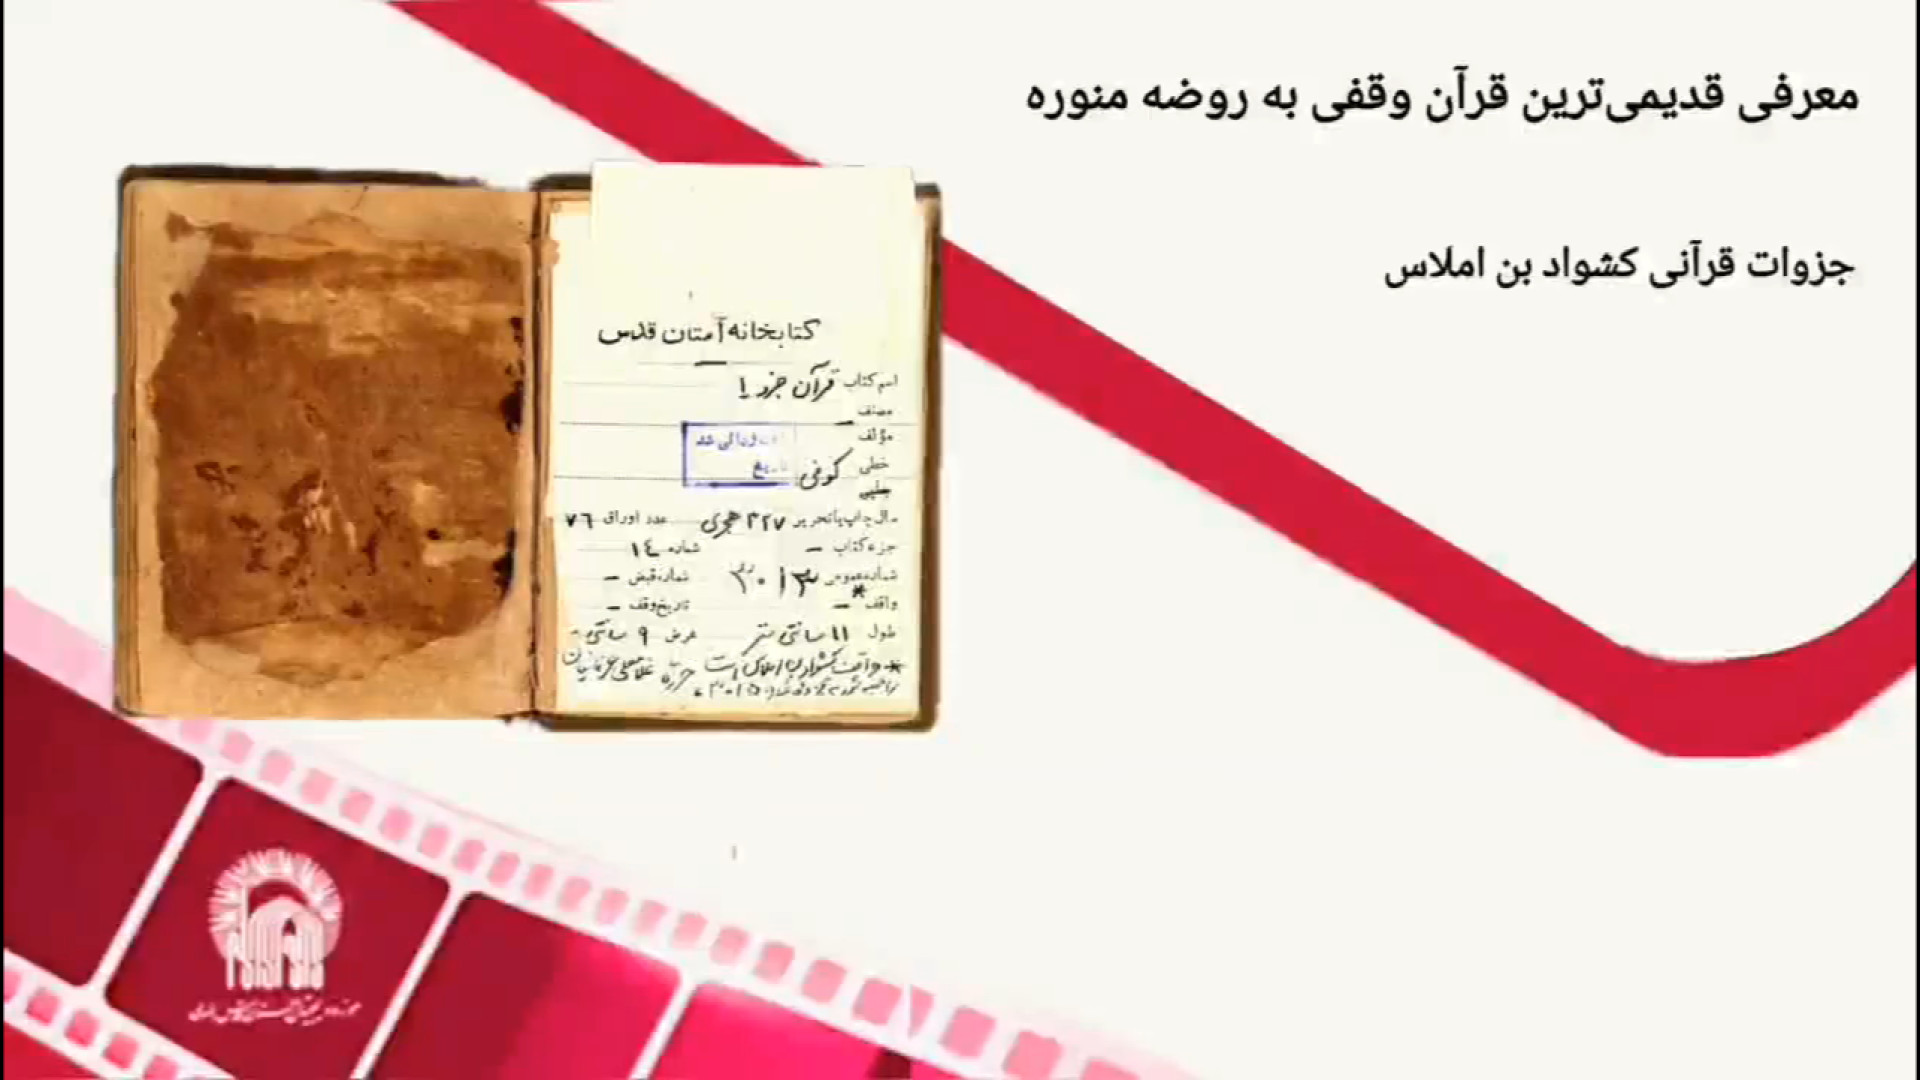 معرفی قدیمی‌ترین قرآن وقفی به روضه منوره
جزوات قرآنی کشواد بن املاس
کتابخانه آستان قدس
اسم کتاب قرآن جزو ۱
مصنف
مؤلف
خطی کوفی
چاپی
سال چاپ یا تحریر ۳۲۷ هجری عدد اوراق ۷۶
جزء کتاب – شماره ۱۴
شماره عمومی ۳۰۱۳ شماره قبض –
واقف – تاریخ وقف –
طول ۱۱ سانتی متر عرض ۹ سانتی
واقف کشواد بن املاس است